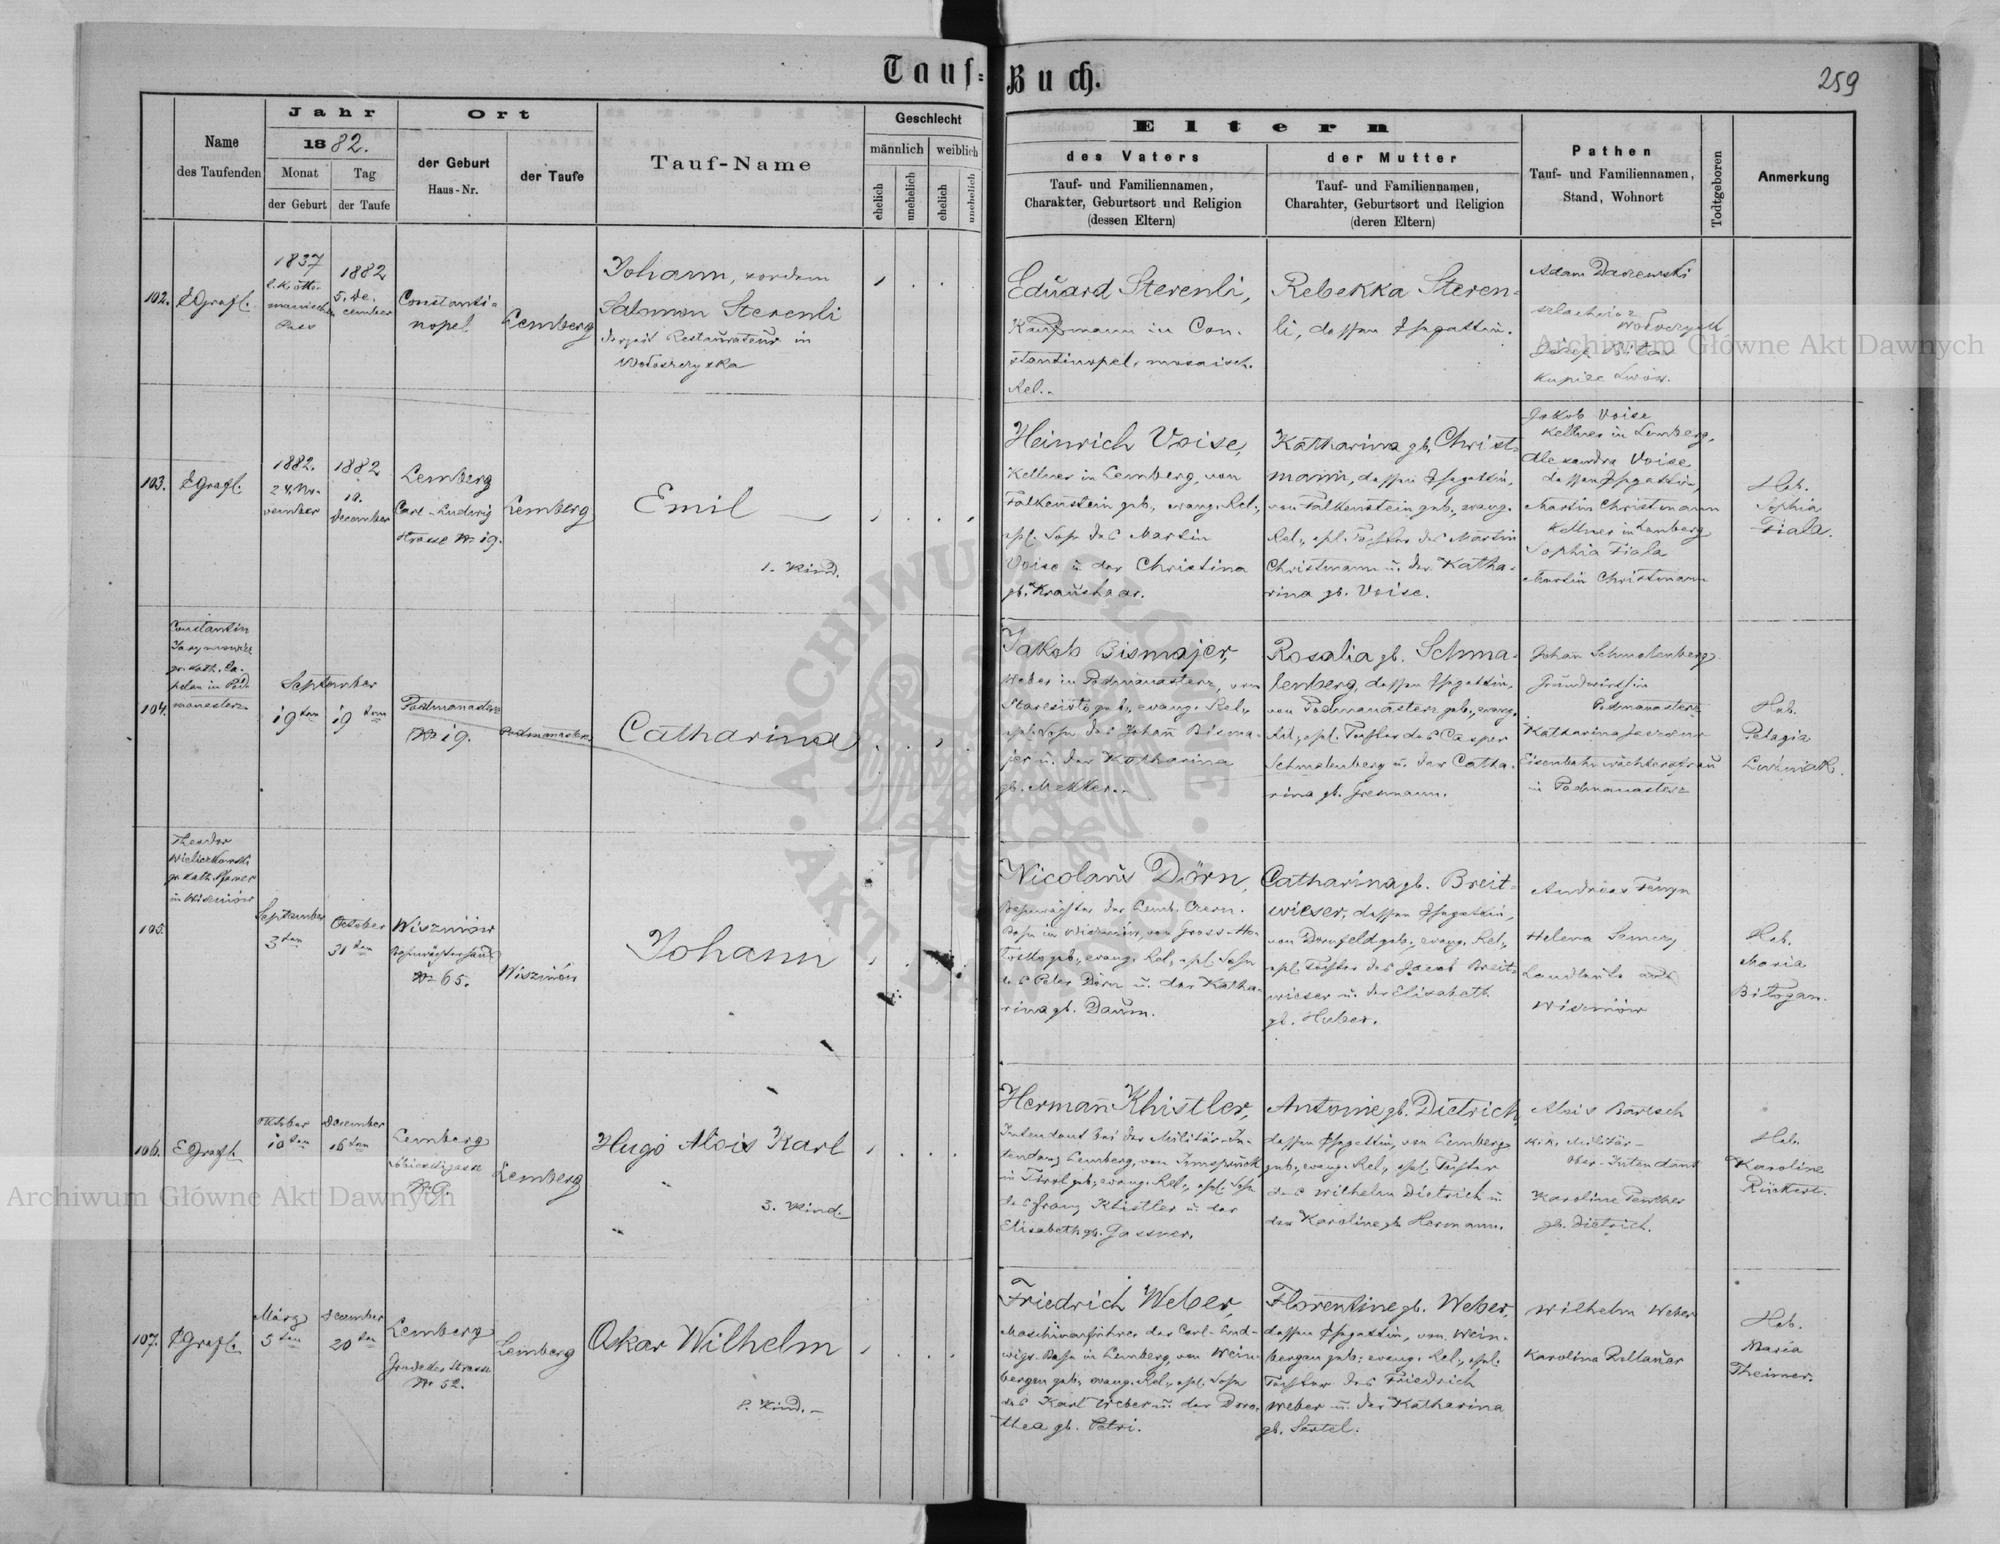 Tauf-Buch.
259
Name
des Taufenden
Jahr
1882.
Monat
der Geburt
Tag
der Taufe
Ort
der Geburt
Haus-Nr.
der Taufe
Tauf-Name
Geschlecht
männlich
weiblich
ehelich
unehelich
ehelich
unehelich
Eltern
des Vaters
Tauf- und Familiennamen,
Charakter, Geburtsort und Religion
(dessen Eltern)
der Mutter
Tauf- und Familiennamen,
Charahter, Geburtsort und Religion
(deren Eltern)
Pathen
Tauf- und Familiennamen,
Stand, Wohnort
Todtgeboren
Anmerkung
102.
1837
Pass
1882
5. De-
cember
Constanti-
nopel
Lemberg
Johann, vordem
Salomon Sterenli
derzeit Restaurateur in
Eduard Sterenli,
Kaufmann in Con-
stantinopel, mosaisch.
Rel.-
Rebekka Steren-
li, dessen Ehegattin.
Adam
Kupiec Lwów.
103.
1882.
24. No-
vember
1882
10.
December
Lemberg
Carl-Ludwig
Strasse № 19.
Lemberg
Emil
1. Kind.
Heinrich Voise,
Kellner in Lemberg, von
Falkenstein geb., evang. Rel.,
ehl. Sohn des Martin
Voise u. der Christina
gb. Kraushaar.
Katharina gb. Christ-
mann, dessen Ehegattin,
von Falkenstein geb., evang.
Rel., ehl. Tochter des Martin
Christmann u. der Katha-
rina gb. Voise.
Jakob Voise
Kellner in Lemberg,
Alexandra Voise
dessen Ehegattin,
Martin Christmann
Kellner in Lemberg
Sophia Fiala
Martin Christmann
Heb.
Sophia
Fiala.
104.
Constantin
gr. kath. Ca-
pelan in Pod-
manasterz
September
19 ten
19 ten
Podmanasterz
№ 19.
Podmanasterz
Catharina
Jakob Bismajer,
Weber in Podmanasterz, von
geb., evang. Rel.,
ehl. Sohn des Johann Bisma-
jer u. der Katharina
gb. Mekker.-
Rosalia gb. Schma-
lenberg, dessen Ehegattin,
von Podmanasterz geb., evang.
Rel., ehl. Tochter des Casper
Schmalenberg u. der Catha-
rina gb.
Johann Schmalenberg
Grundwirthin
Podmanasterz
Katharina
Eisenbahnwächtersfrau
in Podmanasterz
Heb.
Pelagia
105.
Theodor
gr. kath. Pfarrer
in Wiszniów
September
3 ten
October
31 ten
Wiszniów
Bahnwächterhaus
№ 65.
Wiszniów
Johann
Nicolaus Dörn,
Bahnwächter der Lemb. Czern.
Bahn in Wiszniów, von
geb., evang. Rel., ehl. Sohn
des Peter Dörn u. der Katha-
rina gb. Daum.
Catharina gb. Breit-
wieser, dessen Ehegattin,
von Dornfeld geb., evang. Rel.,
ehl. Tochter des Jacob Breit-
wieser u. der Elisabeth
gb. Huber.
Andreas
Helena
Landleute aus
Wiszniów
Heb.
Maria
106.
October
10 ten
December
16 ten
Lemberg
№ 9.
Lemberg
Hugo Alois Karl
3. Kind.-
Hermann Khistler,
Intendant bei der Militär-In-
tendanz Lemberg, von Innspruck
in Tirol geb., evang. Rel., ehl. Sohn
des Franz Khistler u. der
Elisabeth gb. Gassner.
Antonie gb. Dietrich,
dessen Ehegattin, von Lemberg
geb., evang. Rel., ehl. Tochter
des Wilhelm Dietrich u.
der Karoline gb. Hermann.
Alois Bartsch
k. k. Militär-
Ober-Intendant
Karoline Penther
gb. Dietrich.
Heb.
Karoline
Rückert.
107.
März
5 ten
December
20 ten
Lemberg
Grodecker Strasse
№ 52.
Lemberg
Oskar Wilhelm
Kind.-
Friedrich Weber,
Maschinenführer der Carl-Lud-
wigs-Bahn in Lemberg, von Wein-
bergen geb., evang. Rel., ehl. Sohn
des Karl Weber u. der Doro-
thea gb. Petri.
Florentine gb. Weber,
dessen Ehegattin, von Wein-
bergen geb., evang. Rel., ehl.
Tochter des Friedrich
Weber u. der Katharina
gb.
Wilhelm Weber
Karolina
Heb.
Maria
Theimer.
Archiwum Główne Akt Dawnych
Archiwum Główne Akt Dawnych